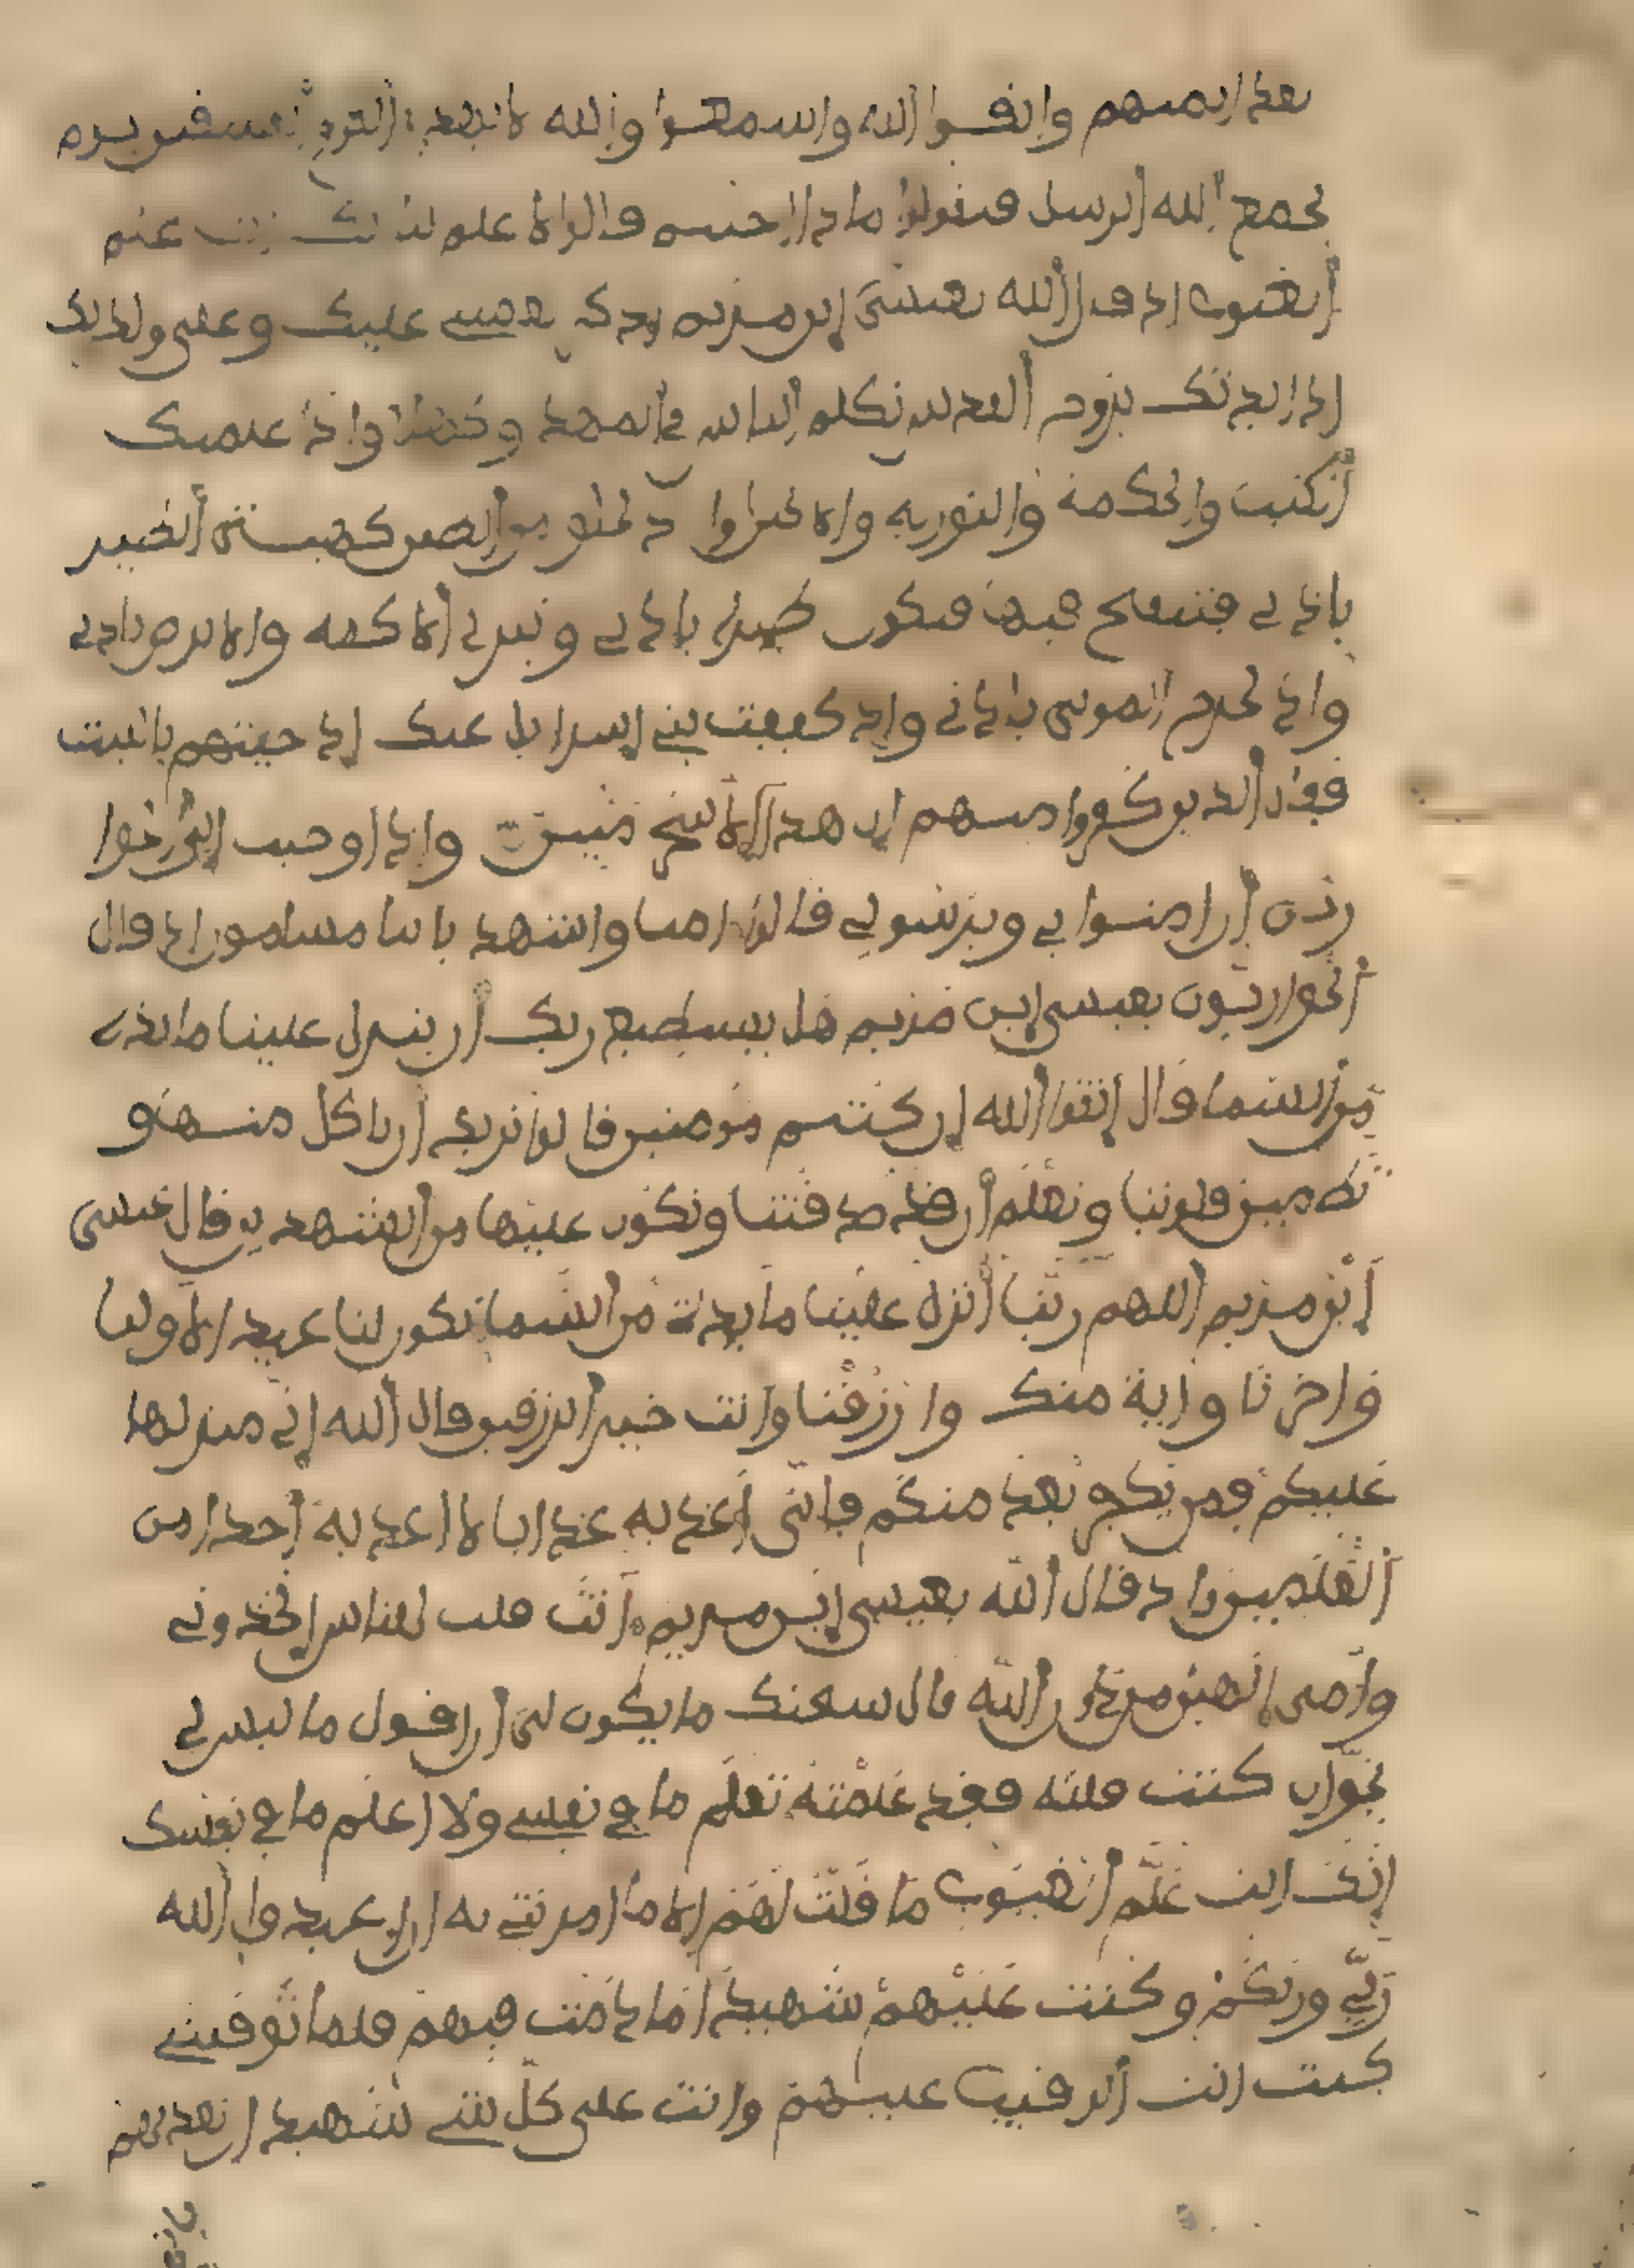 بعد ايمنهم واتقوا الله واسمعوا والله لا يهدي القوم الفسقين يوم
يجمع الله الرسل فيقول ماذا اجبتم قالوا لا علم لنا انك انت علم
الغيوب اذ قال الله يعيسى ابن مريم اذكر نعمتي عليك وعلى ولدتك
اذ ايدتك بروح القدس تكلم الناس في المهد وكهلا واذ علمتك
الكتب والحكمة والتورية والانجيل واذ تخلق من الطين كهيئة الطير
باذني فتنفخ فيها فتكون طيرا باذني وتبرئ الاكمه والابرص باذني
واذ تخرج الموتى باذني واذ كففت بني اسراءيل عنك اذ جئتهم بالبينت
فقال الذين كفروا منهم ان هذا الا سحر مبين واذ اوحيت الى الحوا
رين ان امنوا بي وبرسولي قالوا امنا واشهد باننا مسلمون اذ قال
الحواريون يعيسى ابن مريم هل يستطيع ربك ان ينزل علينا مائدة
من السما قال اتقوا الله ان كنتم مومنين قالوا نريد ان ناكل منها و
تطمين قلوبنا ونعلم ان قد صدقتنا ونكون عليها من الشهدين قال عيسى
ابن مريم اللهم ربنا انزل علينا مايدة من السما تكون لنا عيدا لاولنا
واخرنا واية منك وارزقنا وانت خير الرزقين قال الله اني منزلها
عليكم فمن يكفر بعد منكم فاني اعذبه عذابا لا اعذبه احدا من
العلمين واذ قال الله يعيسى ابن مريم انت قلت للناس اتخذوني
وامي الهين من دون الله قال سبحنك ما يكون لي ان اقول ما ليس لي
بحق ان كنت قلته فقد علمته تعلم ما في نفسي ولا اعلم ما في نفسك
انك انت علم الغيوب ما قلت لهم الا ما امرتني به ان اعبدوا الله
ربي وربكم وكنت عليهم شهيدا ما دمت فيهم فلما توفيتني
كنت انت الرقيب عليهم وانت على كل شي شهيد ان تعذبهم